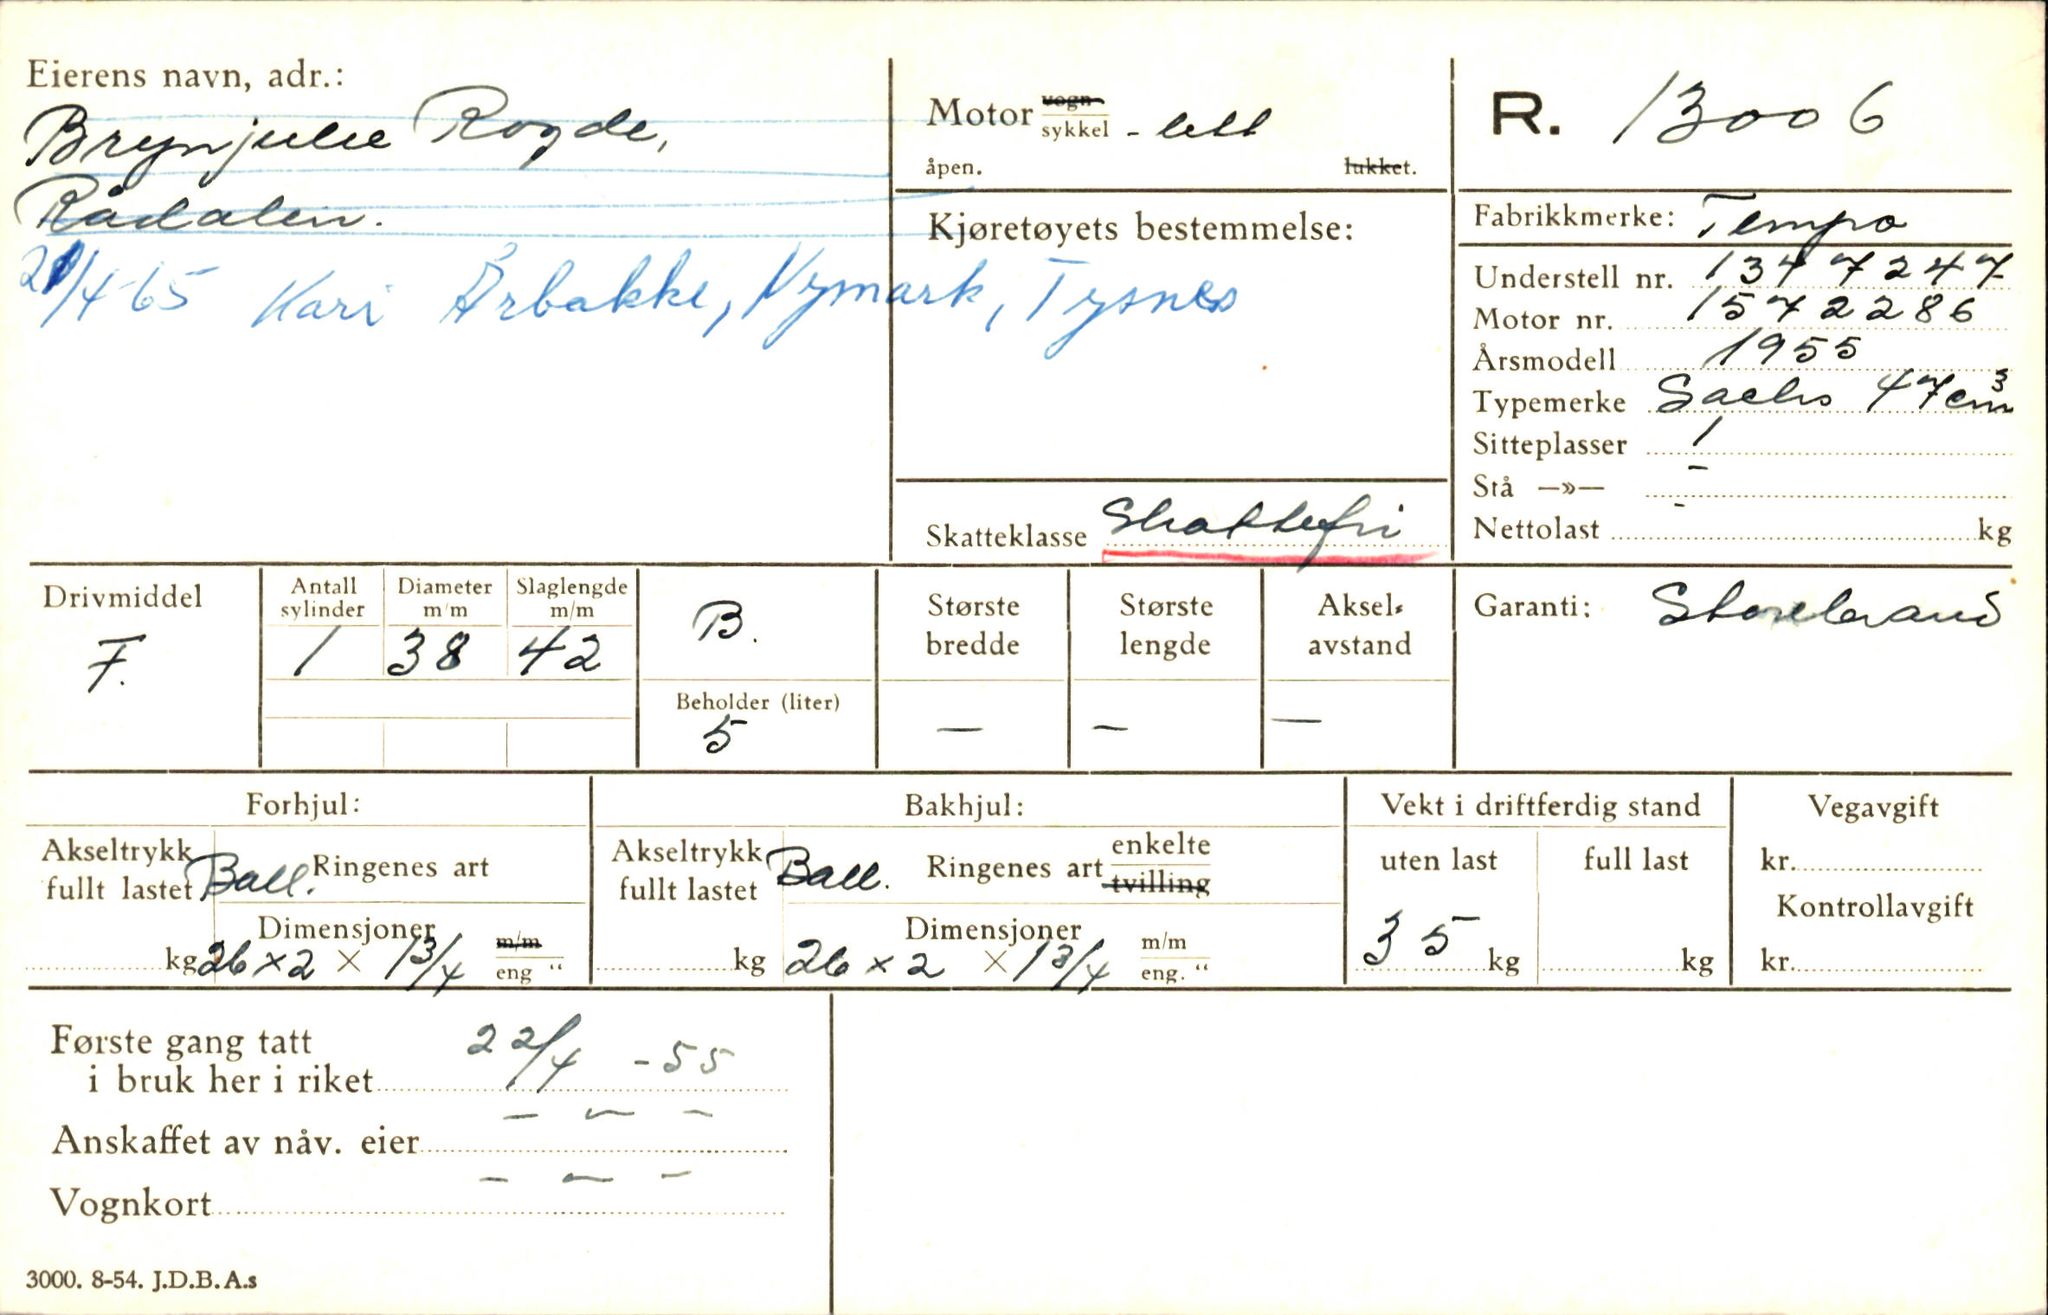 Eierens navn, adr.:
Brynjulv Rogde,
Rådalen.
21/4-65 Kari Årbakke, Nymark, Tysnes
Motor vogn sykkel - lett
åpen. lukket.
Kjøretøyets bestemmelse:
Skatteklasse Skattefri
R. 13006
Fabrikkmerke: Tempo
Understell nr. 1347247
Motor nr. 1572286
Årsmodell 1955
Typemerke Sachs 47cm³
Sitteplasser 1
Stå —»— -
Nettolast - kg
Drivmiddel
F.
Antall sylinder
1
Diameter m/m
38
Slaglengde m/m
42
B.
Beholder (liter)
5
Største bredde
—
Største lengde
—
Aksel-avstand
—
Garanti: Storebrand
Forhjul:
Akseltrykk fullt lastet
kg
Ball. Ringenes art
Dimensjoner
26 x 2 x 1 3/4 m/m eng "
Bakhjul:
Akseltrykk fullt lastet
kg
Ball. Ringenes art enkelte tvilling
Dimensjoner
26 x 2 x 1 3/4 m/m eng. "
Vekt i driftferdig stand
uten last
35 kg
full last
kg
Vegavgift
kr.
Kontrollavgift
kr.
Første gang tatt
i bruk her i riket 22/4 -55
Anskaffet av nåv. eier — — —
Vognkort — — —
3000. 8-54. J.D.B.A.s